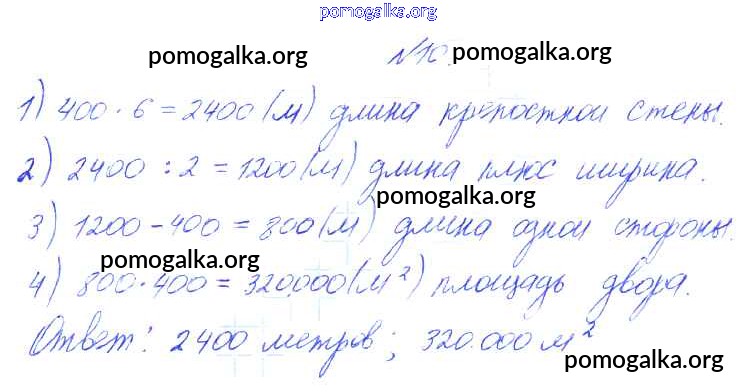 pomogalka.org
pomogalka.org № 10. pomogalka.org
1) 400 · 6 = 2400 (м) длина крепостной стены.
2) 2400 : 2 = 1200 (м) длина плюс ширина.
pomogalka.org
3) 1200 - 400 = 800 (м) длина одной стороны.
pomogalka.org
4) 800 · 400 = 320.000 (м²) площадь двора.
Ответ: 2400 метров; 320.000 м²
pomogalka.org